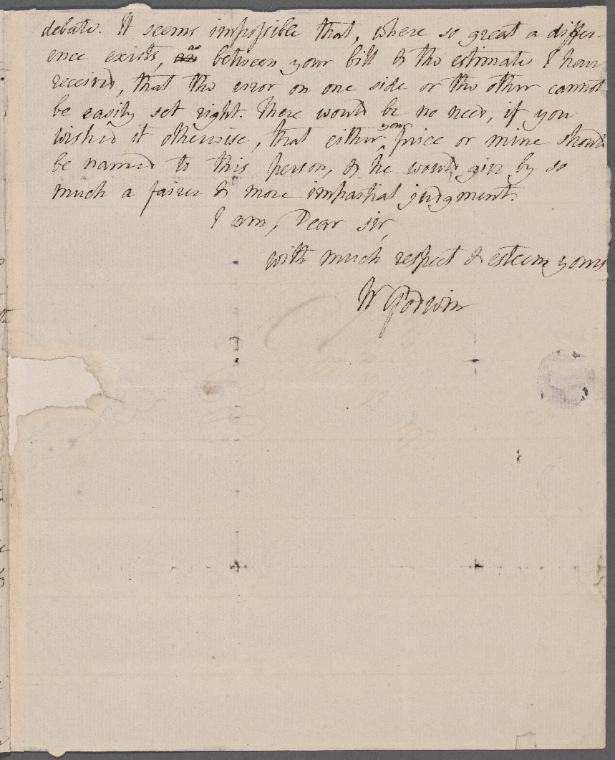 debate. It seems impossible that, where so great a differ-
ence exists, as between your bill & the estimate I have
received, that the error on one side or the other cannot
be easily set right. There would be no need, if you
wished it otherwise, that either your price or mine should
be named to this person, & he would give by so
much a fairer & more impartial judgment.
I am, Dear sir,
with much respect & esteem yours
W Godwin